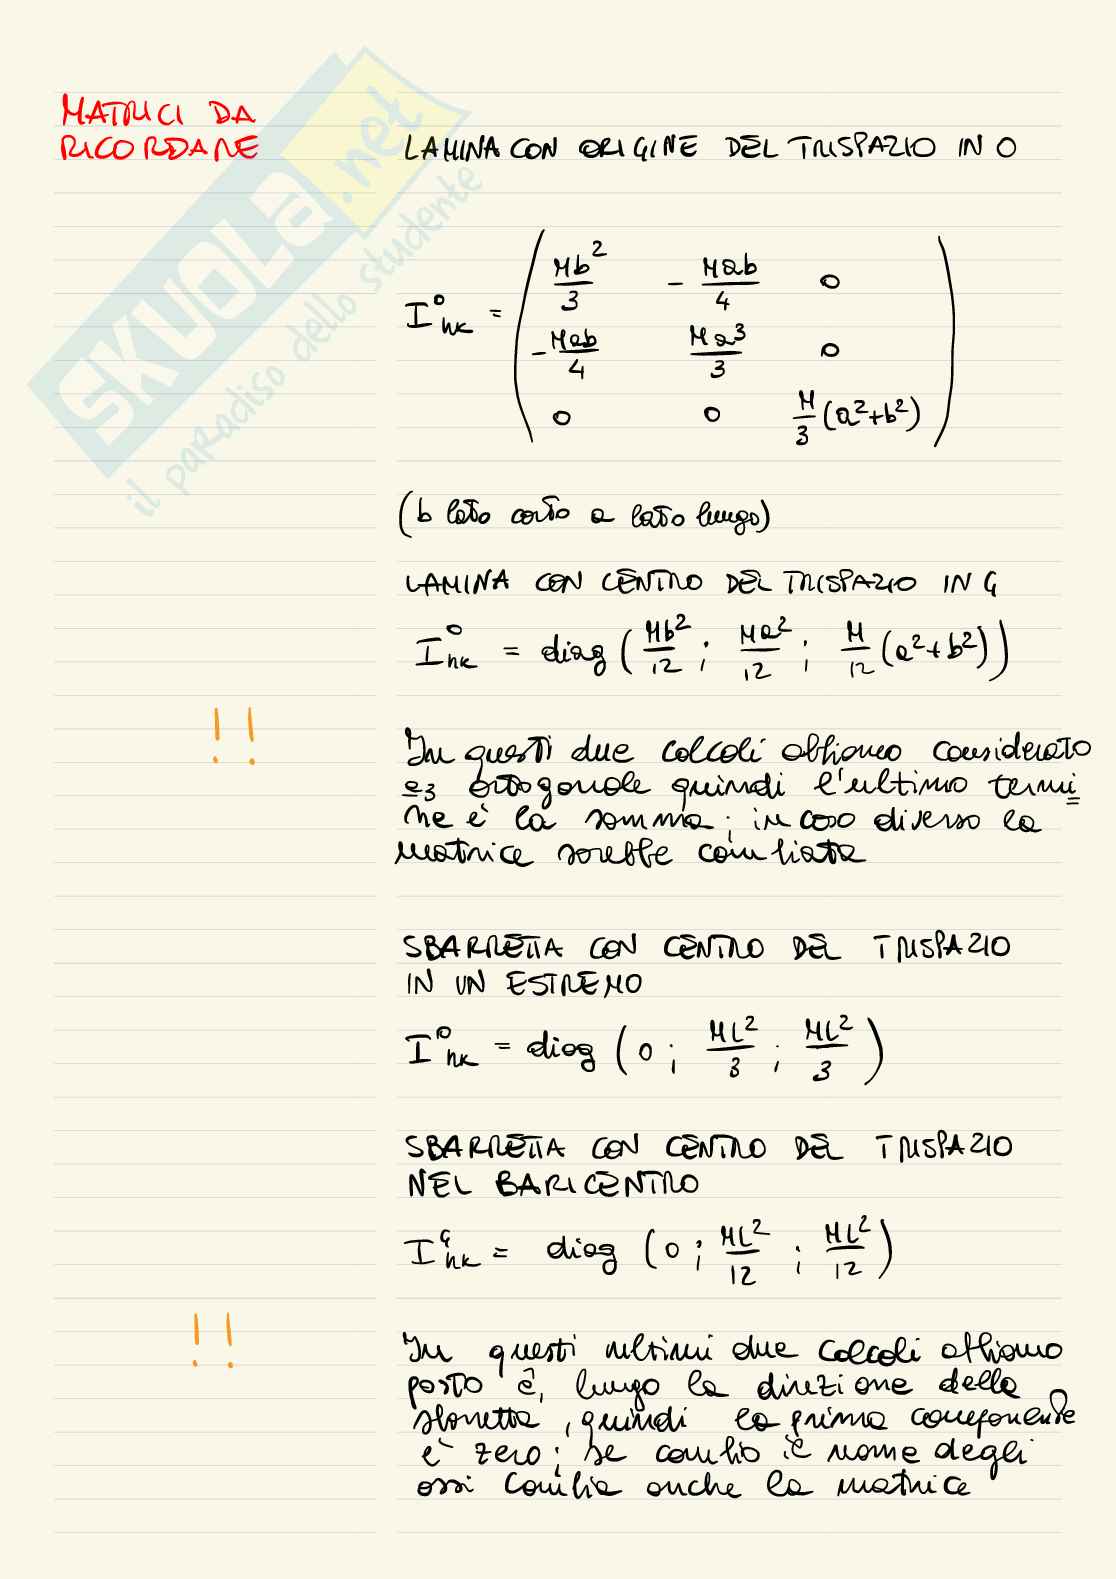 MATRICI DA
RICORDARE
SKUOLA.net
il paradiso dello studente
LAMINA CON ORIGINE DEL TRISPAZIO IN O
I⁰hk = ( Mb²/3   - Mab/4   0
- Mab/4   Ma³/3   0
0   0   M/3 (a²+b²) )
(b lato corto a lato lungo)
LAMINA CON CENTRO DEL TRISPAZIO IN G
I⁰hk = diag ( Mb²/12 ; Ma²/12 ; M/12 (a²+b²) )
!!
In questi due calcoli abbiamo considerato
e3 ortogonale quindi l'ultimo termi=
ne è la somma; in caso diverso la
matrice sarebbe cambiata
SBARRETTA CON CENTRO DEL TRISPAZIO
IN UN ESTREMO
I⁰hk = diag ( 0 ; ML²/3 ; ML²/3 )
SBARRETTA CON CENTRO DEL TRISPAZIO
NEL BARICENTRO
Iᴳhk = diag ( 0 ; ML²/12 ; ML²/12 )
!!
In questi ultimi due calcoli abbiamo
posto ê, lungo la direzione della
sbarretta, quindi la prima componente
è zero; se cambio il nome degli
assi cambia anche la matrice